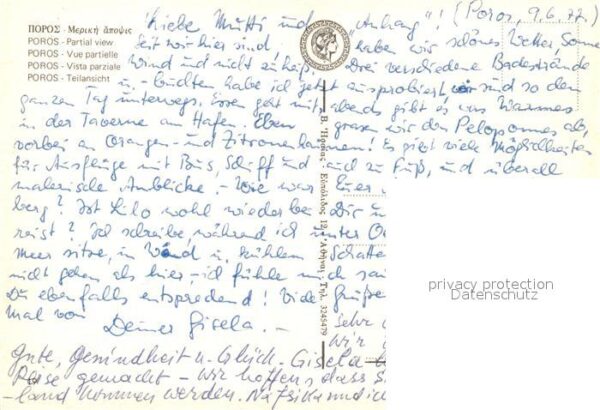 ΠΟΡΟΣ - Μερική άποψις
POROS - Partial view
POROS - Vue partielle
POROS - Vista parziale
POROS - Teilansicht
(Poros, 9.6.77.)
Liebe Mutti und "Anhang"!
Seit wir hier sind, haben wir schönes Wetter, Sonne
Wind und nicht zu heiß. Drei verschiedene Badestrände
u. -buchten habe ich jetzt ausprobiert, wir sind so den
ganzen Tag unterwegs. Essen geht mittags abends gibt es was Warmes
in der Taverne am Hafen. Eben grasen wir den Peloponnes ab,
vorbei an Orangen- und Zitronenhainen! Es gibt viele Möglichkeiten
für Ausflüge mit Bus, Schiff und und zu Fuß, und überall
malerische Anblicke. - Wie war Euer
berg? Ist Lilo wohl wieder bei Dir
reist? Ich schreibe, während ich unter
Meer sitze, in Wind u. kühlem Schatten
nicht gehen als hier, - ich fühle mich
Du ebenfalls entspreched! Viele Grüße
mal von
Deiner Gisela. -
sehr
wir
Gute, Gesundheit u. Glück. Gisela
Reise gemacht - wir hoffen dass
land kommen werden. Nafsika und
Β. Ήρρης - Ευπόλιδος 12, Αθήναι, Τηλ. 3245479
privacy protection
Datenschutz